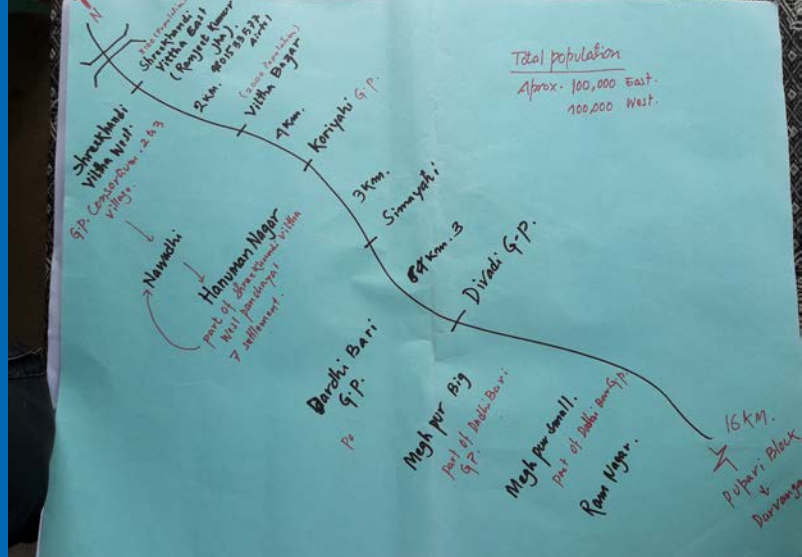 N
Shreekhandi
Vittha East
(Ranjeet Kumar
Jha)
Airtel
2km.
(2000 Population)
Vittha Bazar
4km.
Koriyahi G.P.
3km.
Simayahi
km. 3
Divadi G.P.
Total population
Aprox. 100,000 East.
100,000 West.
Shreekhandi
Vittha West.
G.P. Consortium. 2 to 3
village.
Nawadhi
Hanuman Nagar
part of Shreekhandi Vittha
West panchayat
7 settlement.
Dardhi Bari
G.P.
Po
Megh pur Big
part of Dadhi Bari
G.P.
Megh pur small.
part of Dadhi Bari G.P.
Ram Nagar.
16 KM.
Pupari Block
Darvanga